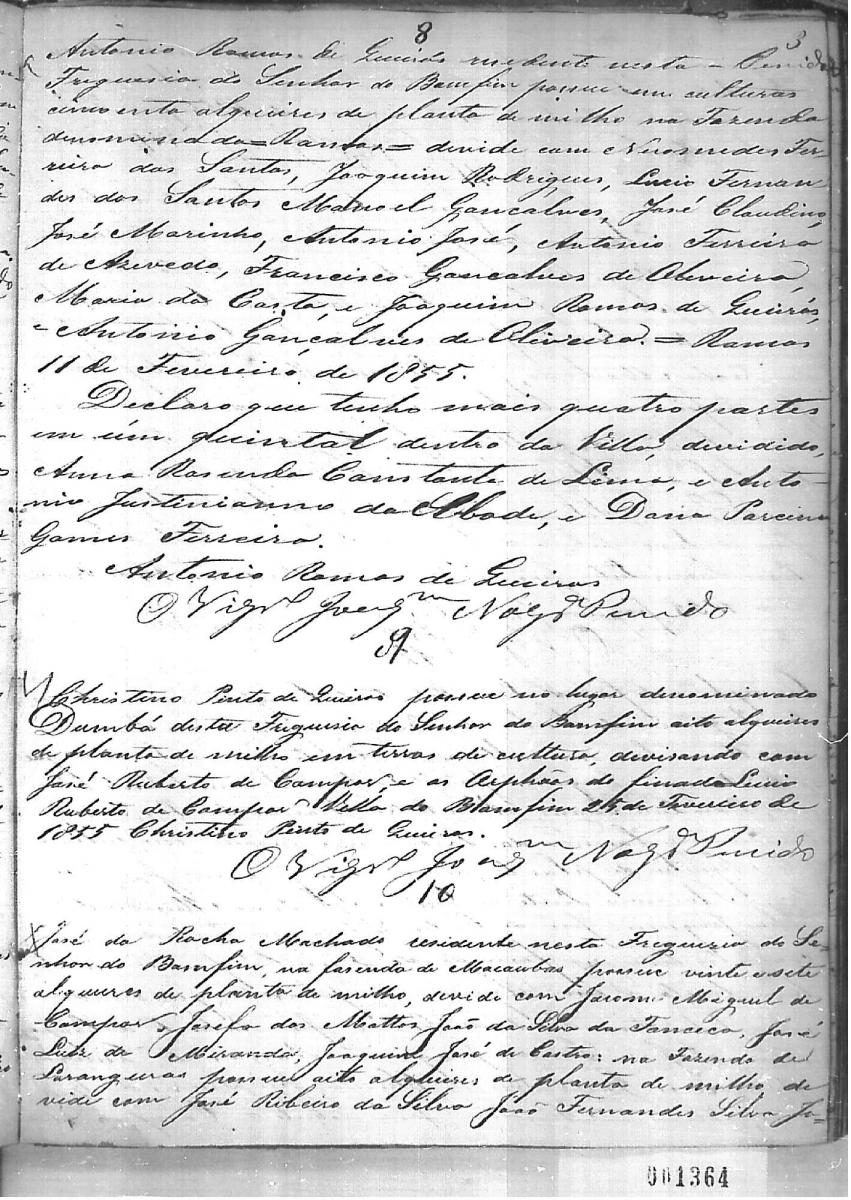 8
3
Antonio Ramos de Queirós residente nesta = Penido
Freguesia do Senhor do Bomfim possue em culturas
cincoenta alqueires de planta de milho na Fazenda
denominada = Ramos = devide com Nicomedes Fer-
reira dos Santos, Joaquim Rodrigues, Lucio Fernan
des dos Santos Manoel Gonçalves, José Claudino,
José Marinho, Antonio José, Antonio Ferreira
de Azevedo, Francisco Gonçalves de Oliveira,
Maria da Costa, e Joaquim Ramos de Queirós,
= Antonio Gonçalves de Oliveira. = Ramos
11 de Fevereiro de 1855.
Declaro que tenho mais quatro partes
em um quintal dentro da Villa, devidido,
Anna Rosenda Constante de Lima, e Anto-
nio Justinianno da Abade, e Dona
Gomes Ferreira.
Antonio Ramos de Queiros
O Vigrº Joaqm Nogrª Penido
9
Christino Pinto de Queiros possue no lugar denominado
Dumbá desta Freguesia do Senhor do Bomfim oito alqueires
de planta de milho em terras de cultura, devisando com
José Ruberto de Campos, e os Orphãos do finado Lucio
Ruberto de Campos Villa do Bomfim 24 de Fevereiro de
1855 Christino Pinto de Queiros.
O Vigrº Joaqm Nogrª Penido
10
José da Rocha Machado residente nesta Freguezia do Se-
nhor do Bomfim, na fasenda de Macaubas possue vinte e sete
alqueires de planta de milho, devide com Jeronimo Miguel de
Campos, Josefa dos Mattos João da Silva da Fonseca, José
Luiz de Miranda, Joaquim José de Castro: na Fazenda de
Larangeiras possue oito alqueires de planta de milho de
vide com José Ribeiro da Silva João Fernandes Silva Jo-
001364